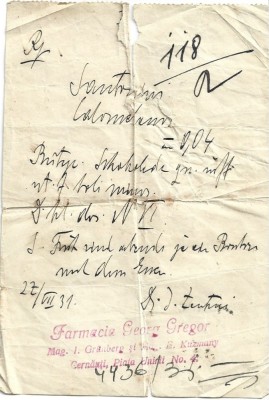 Rp.
118
Santonini
Calomelanos
0,04
Schokolade qu. suff.
ut f. boli
D. tal. dos. N VI
S. Früh und abends je
nach dem Essen
27/VII 31.
Farmacia Georg Gregor
Mag. I. Grünberg și E. Kuzmany
Cernăuți, Piața Unirii No. 4.
4436/31